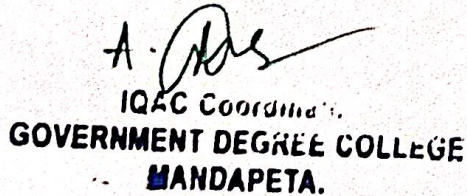 A.
IQAC Coordinator.
GOVERNMENT DEGREE COLLEGE
MANDAPETA.